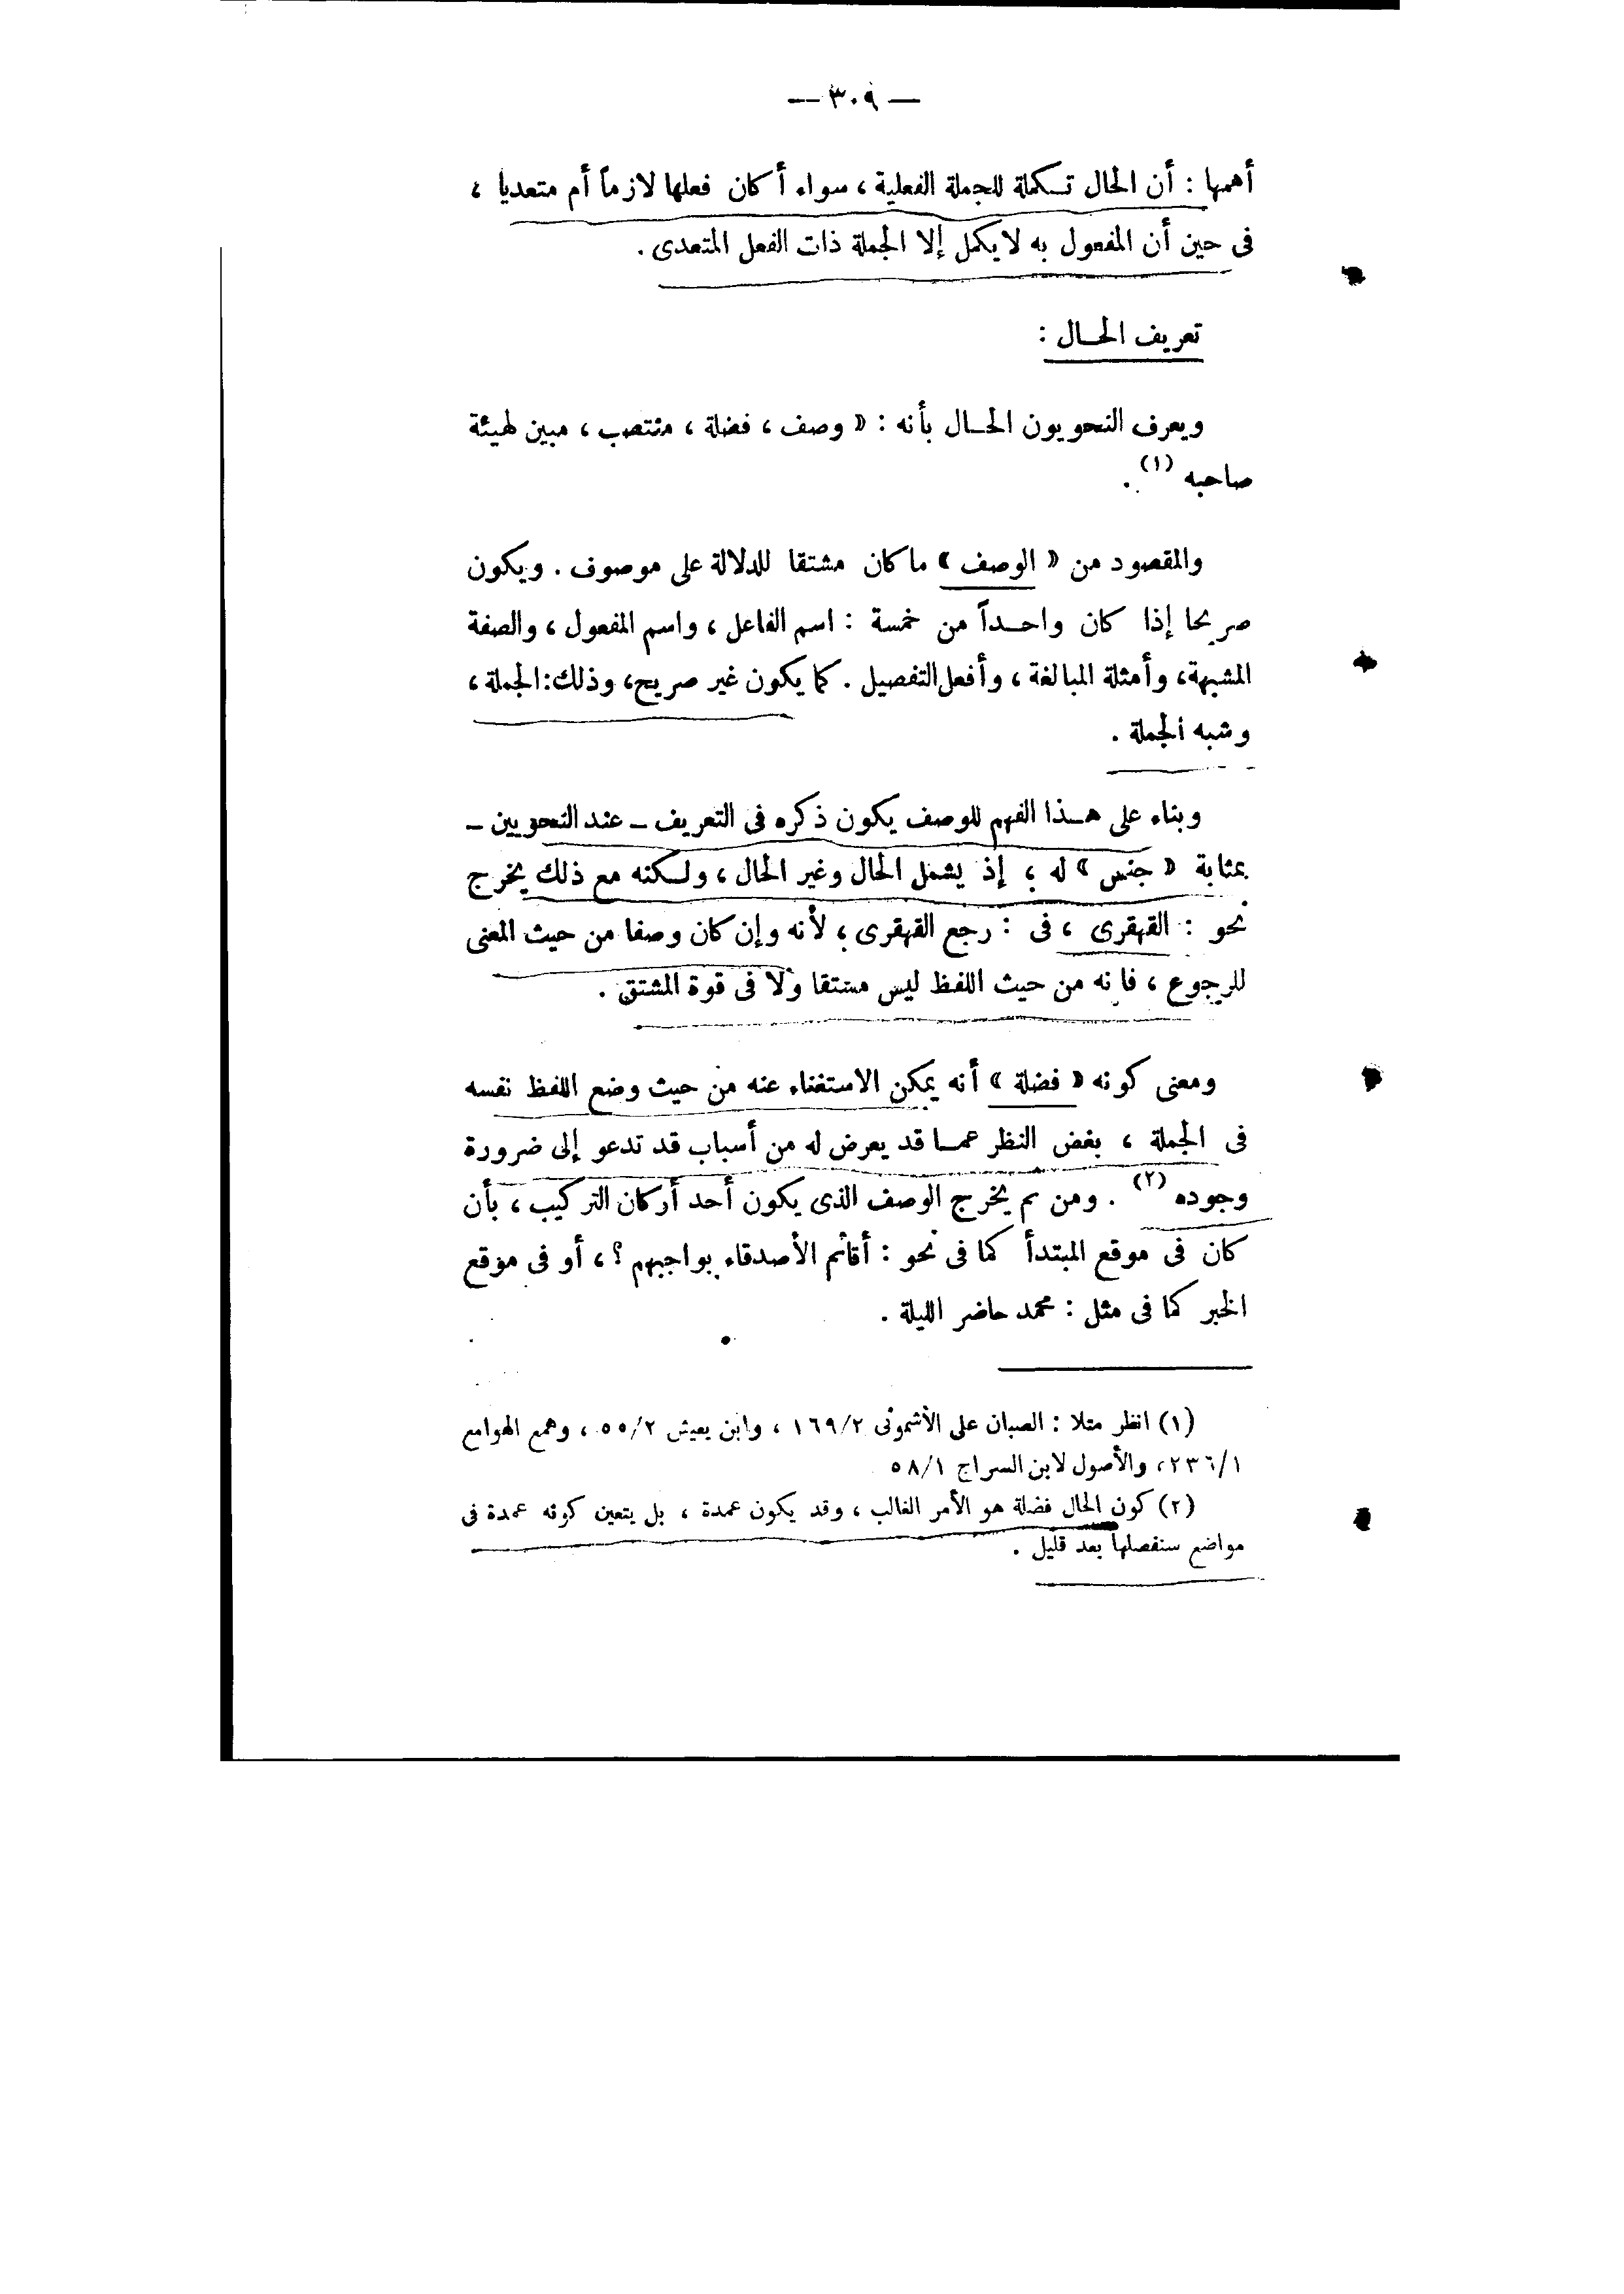 — ٣٠٩ —
أهمها : أن الحال تكملة للجملة الفعلية ، سواء أكان فعلها لازماً أم متعديا ،
فى حين أن المفعول به لا يكمل إلا الجملة ذات الفعل المتعدى .
تعريف الحال :
ويعرف النحويون الحال بأنه : « وصف ، فضلة ، منتصب ، مبين لهيئة
صاحبه (١) .
والمقصود من « الوصف » ما كان مشتقا للدلالة على موصوف . ويكون
صريحا إذا كان واحداً من خمسة : اسم الفاعل ، واسم المفعول ، والصفة
المشبهة ، وأمثلة المبالغة ، وأفعل التفصيل . كما يكون غير صريح ، وذلك : الجملة ،
وشبه الجملة .
وبناء على هذا الفهم للوصف يكون ذكره فى التعريف – عند النحويين –
بمثابة « جنس » له ؛ إذ يشمل الحال وغير الحال ، ولكنه مع ذلك يخرج
نحو : القهقرى ، فى : رجع القهقرى ؛ لأنه وإن كان وصفا من حيث المعنى
للرجوع ، فانه من حيث اللفظ ليس مشتقا ولا فى قوة المشتق .
ومعنى كونه « فضلة » أنه يمكن الاستغناء عنه من حيث وضع اللفظ نفسه
فى الجملة ، بغض النظر عما قد يعرض له من أسباب قد تدعو إلى ضرورة
وجوده (٢) . ومن ثم يخرج الوصف الذى يكون أحد أركان التركيب ، بأن
كان فى موقع المبتدأ كما فى نحو : أقائم الأصدقاء بواجبهم ؟ ، أو فى موقع
الخبر كما فى مثل : محمد حاضر الليلة .
(١) انظر مثلا : الصبان على الأشمونى ١٦٩/٢ ، وابن يعيش ٥٥/٢ ، وهمع الهوامع
٢٣٦/١ ، والأصول لابن السراج ٥٨/١
(٢) كون الحال فضلة هو الأمر الغالب ، وقد يكون عمدة ، بل يتعين كونه عمدة فى
مواضع سنفصلها بعد قليل .